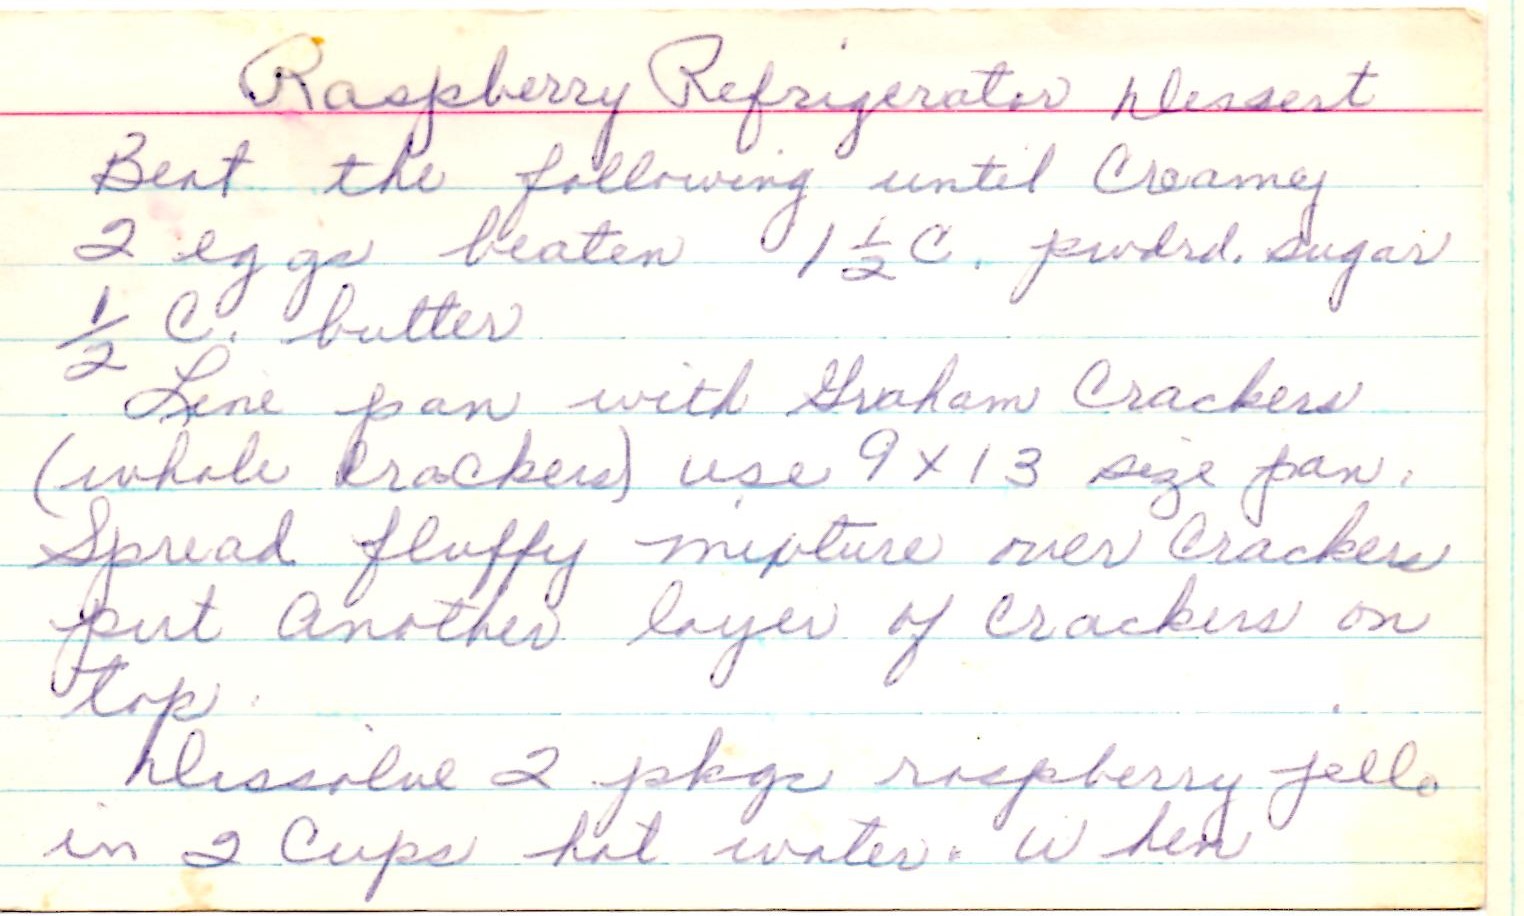 Raspberry Refrigerator Dessert
Beat the following until Creamey
2 eggs beaten 1 1/2 C. pwdrd. sugar
1/2 C. butter
Line pan with Graham Crackers
(whole Crackers) use 9 x 13 size pan.
Spread fluffy mixture over Crackers
put another layer of Crackers on
top.
Dissolve 2 pkgs raspberry jello
in 2 Cups hot water. When